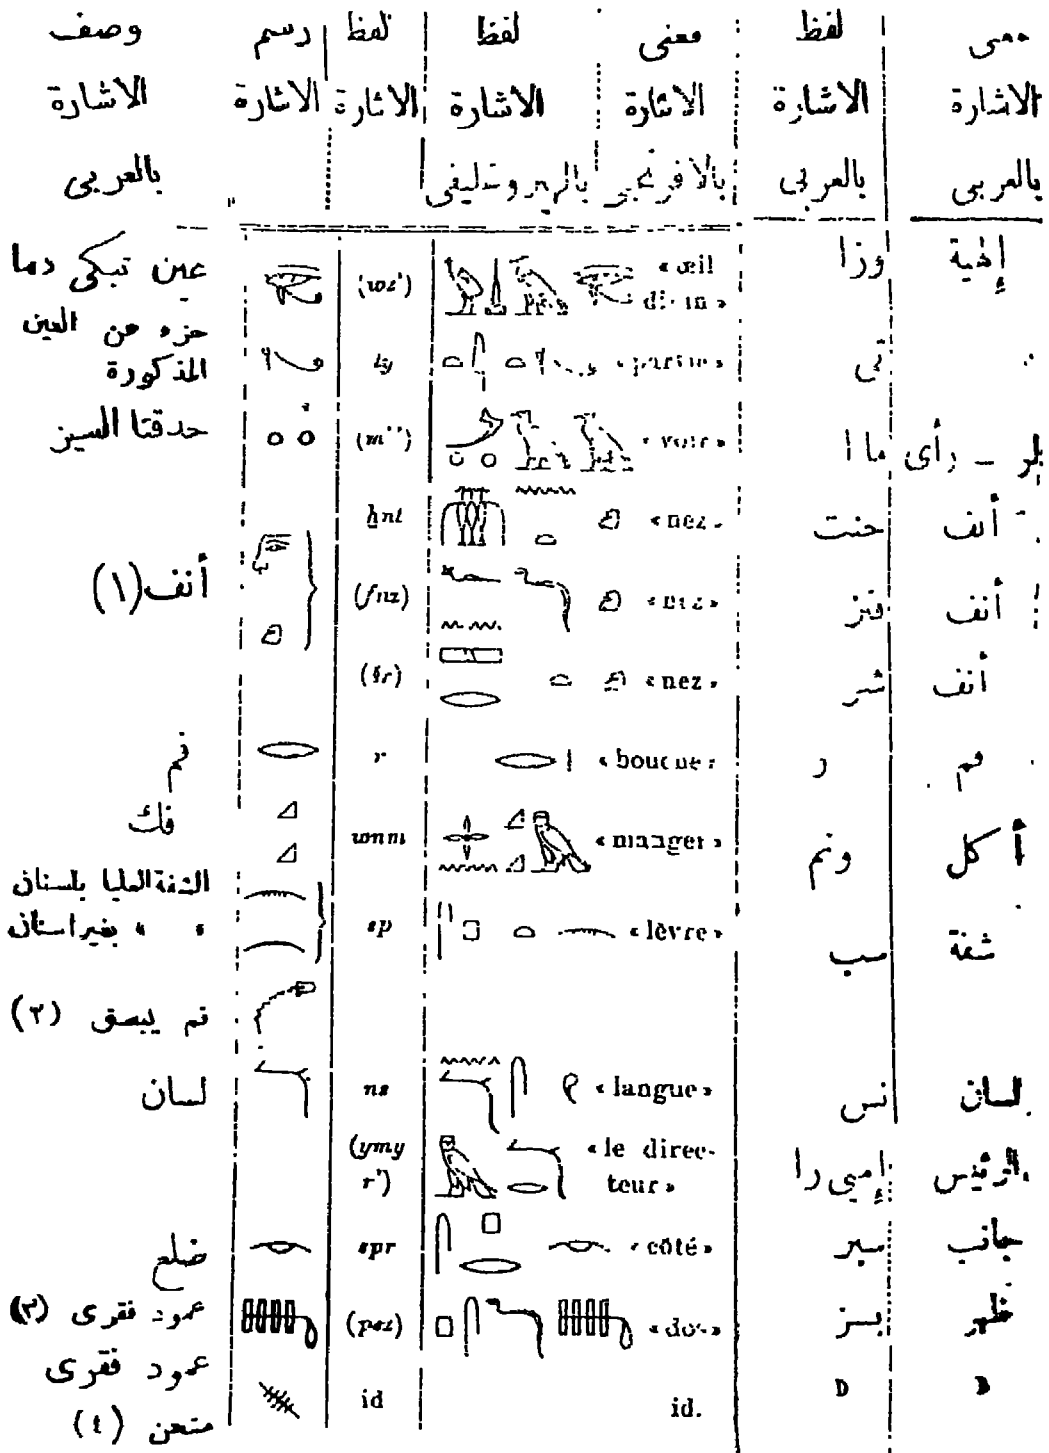 وصف | رسم | لفظ | لفظ | معنى | لفظ | معنى
الاشارة | الاشارة | الاشارة | الاشارة | الاشارة | الاشارة | الاشارة
بالعربى | بالهيروغليفى | بالافرنجى | بالعربى | بالعربى
عين تبكى دما | (wz') | « œil divin » | وزا | إلهية
جزء من العين المذكورة | ty | « partie » | تى
حدقتا العين | (m'') | « voir » | ما ا | رأى
ḫnt | « nez » | خنت | أنف
أنف (١) | (fnz) | « nez » | فنز | أنف
(šr) | « nez » | شر | أنف
فم | r | « bouche » | ر | فم
فك | wnm | « manger » | ونم | أكل
الشفة العليا بأسنان
» » بغير اسنان | sp | « lèvre » | سب | شفة
فم يبصق (٢)
لسان | ns | « langue » | نس | لسان
(ymy r') | « le directeur » | إمى را | الرئيس
ضلع | spr | « côté » | سبر | جانب
عمود فقرى (٣) | (psz) | « dos » | بسز | ظهر
عمود فقرى
منحن (٤) | id | id. | D | D